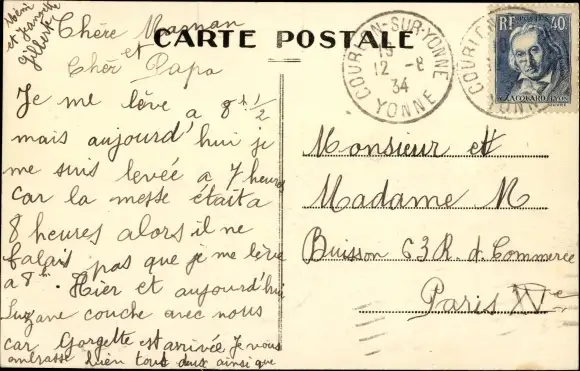 Mémé
et Jeannette
Gilberte
Chère Maman
et
Cher Papa
CARTE POSTALE
Je me lève a 8h 1/2
mais aujourd'hui je
me suis levée a 7 heures
car la messe était a
8 heures alors il ne
falais pas que je me lève
a 8h. Hier et aujourd'hui
Suzane couche avec nous
car Gorgette est arrivée Je vous
ambrasse bien tout deux ainsi que
COURLON-SUR-YONNE
19
12 -8
34
YONNE
RF
POSTES
40c
JACQUARD LYON
Monsieur et
Madame R
Buisson 63 R. d. Commerce
Paris XVe